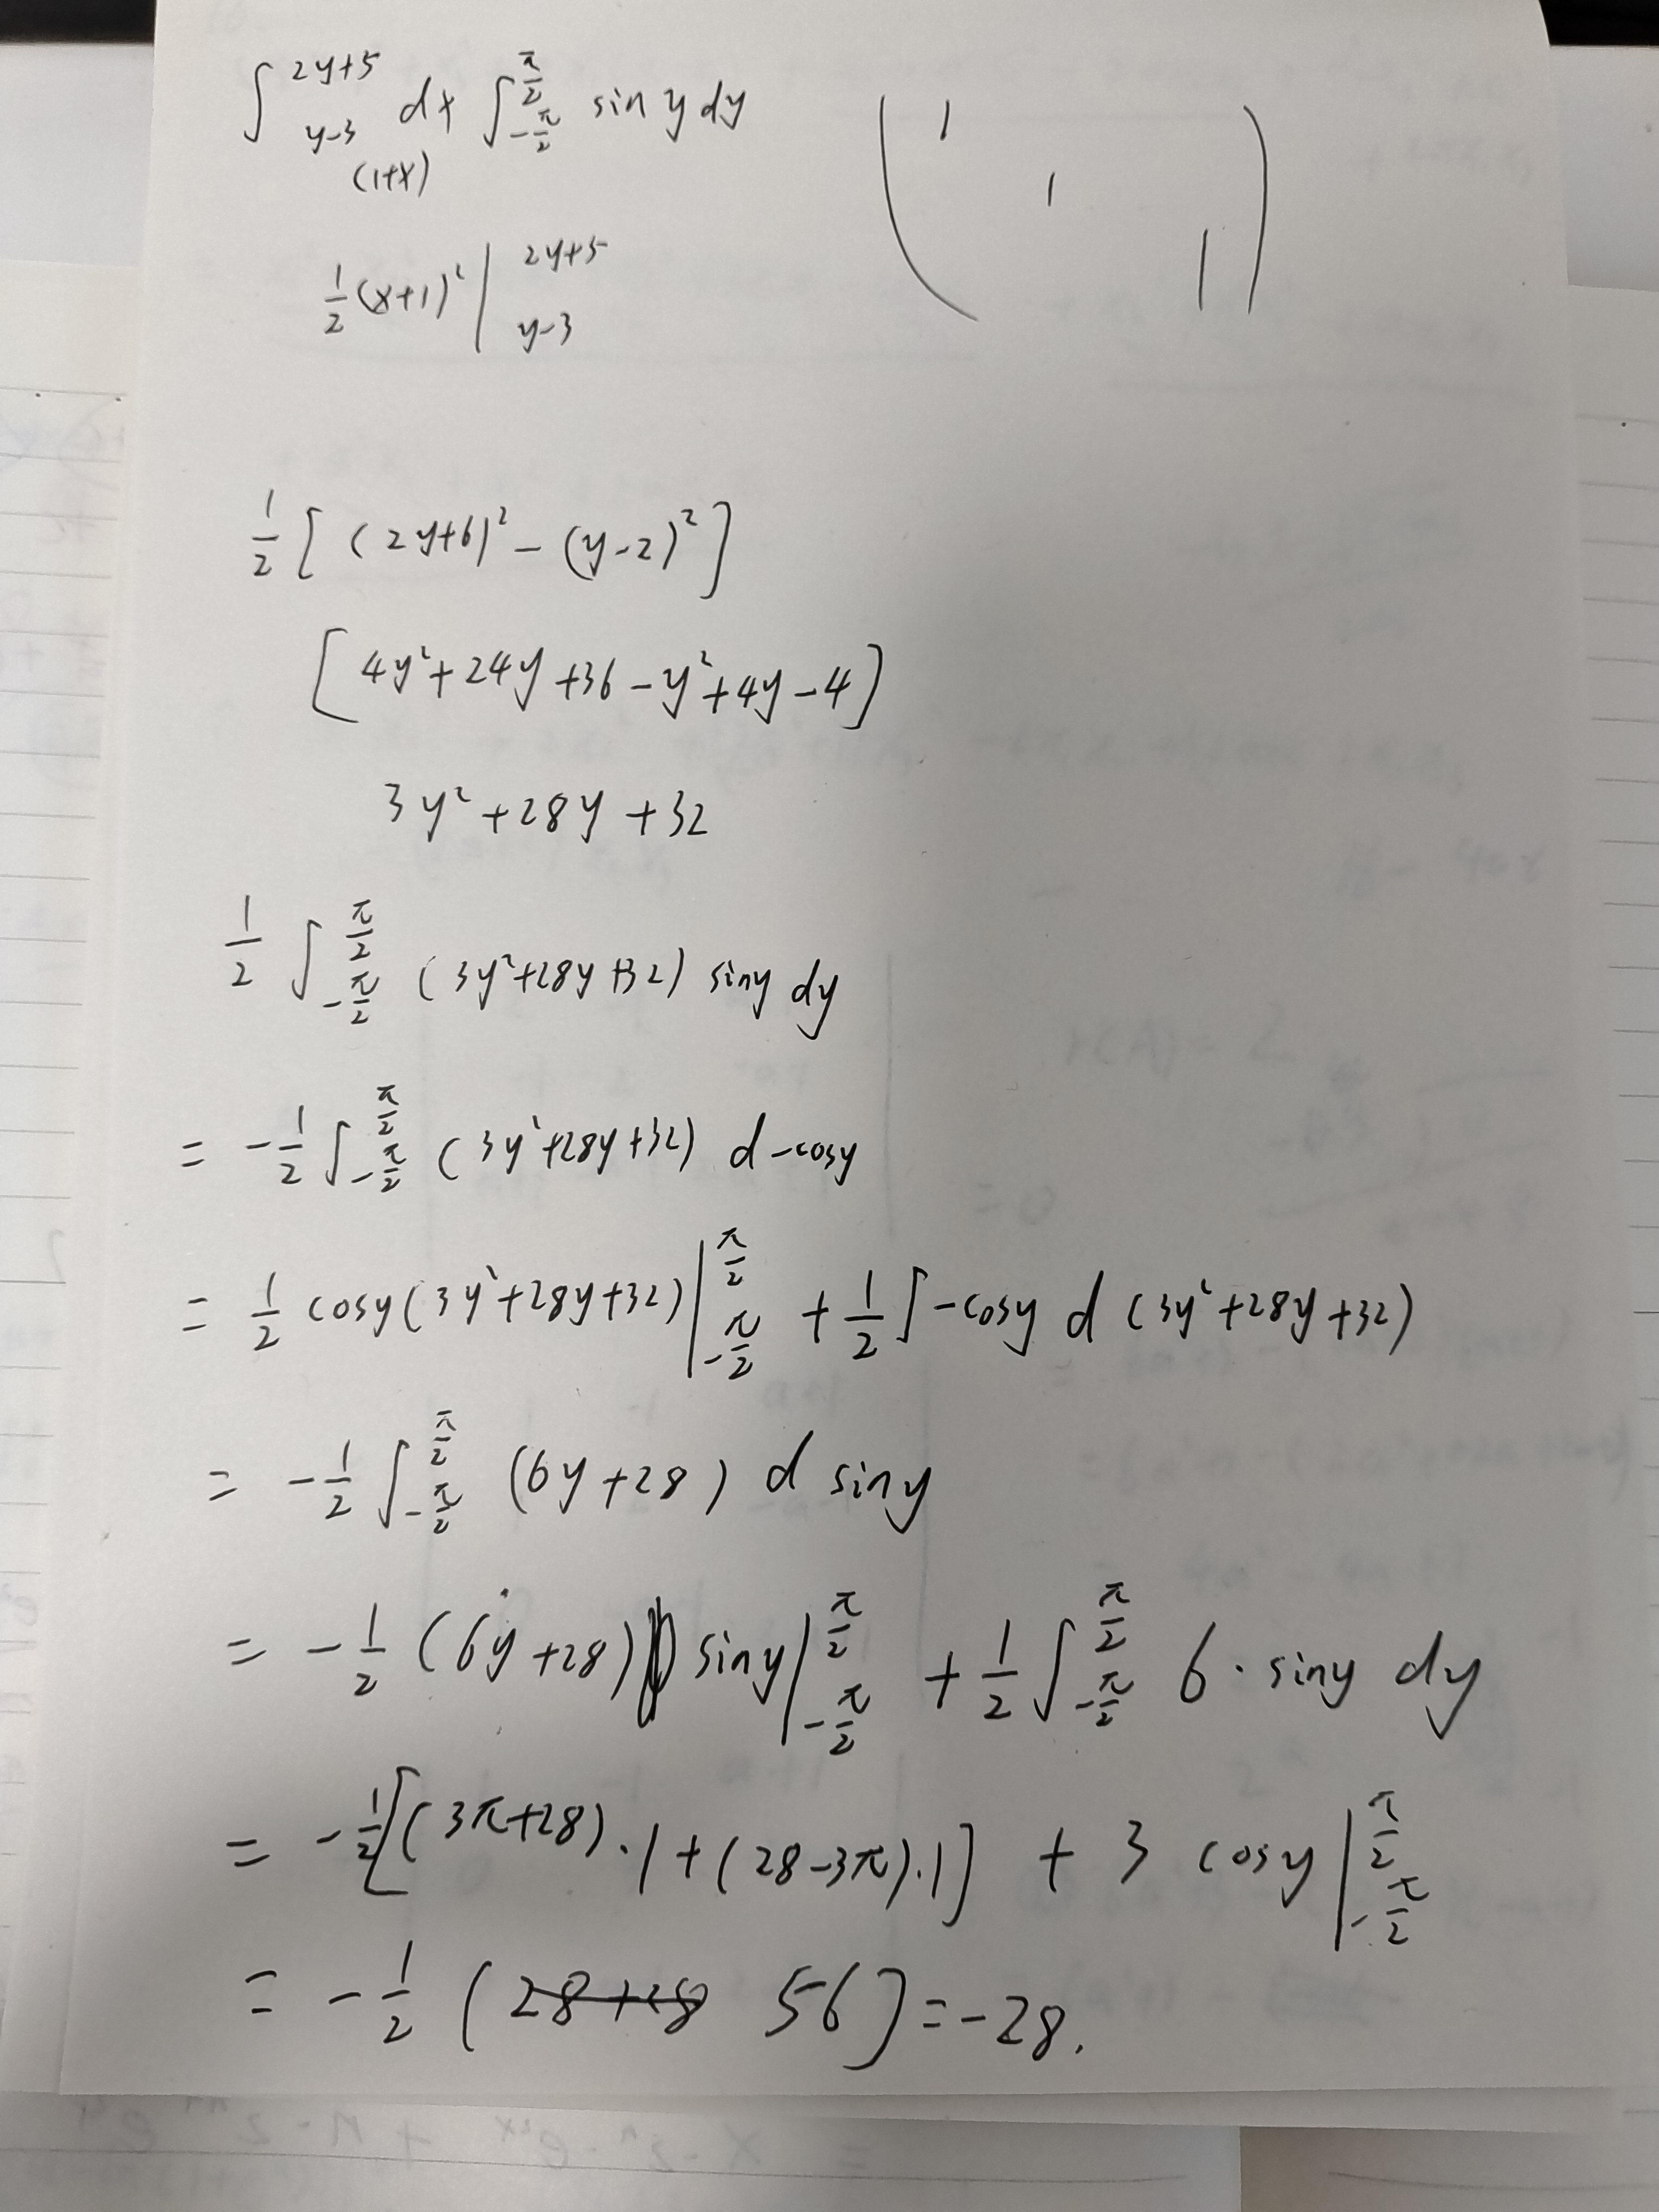 ∫_{y-3}^{2y+5} dx ∫_{-π/2}^{π/2} sin y dy
(1+x)
( 1
1
1 )
1/2 (x+1)² |_{y-3}^{2y+5}
1/2 [ (2y+6)² - (y-2)² ]
[ 4y² + 24y + 36 - y² + 4y - 4 ]
3y² + 28y + 32
1/2 ∫_{-π/2}^{π/2} (3y²+28y+32) siny dy
= -1/2 ∫_{-π/2}^{π/2} (3y²+28y+32) d -cosy
= 1/2 cosy (3y²+28y+32) |_{-π/2}^{π/2} + 1/2 ∫ -cosy d (3y²+28y+32)
= -1/2 ∫_{-π/2}^{π/2} (6y+28) d siny
= -1/2 (6y+28) siny |_{-π/2}^{π/2} + 1/2 ∫_{-π/2}^{π/2} 6·siny dy
= -1/2 [(3π+28)·1 + (28-3π)·1] + 3 cosy |_{-π/2}^{π/2}
= -1/2 ( 28+28 56 ] = -28.